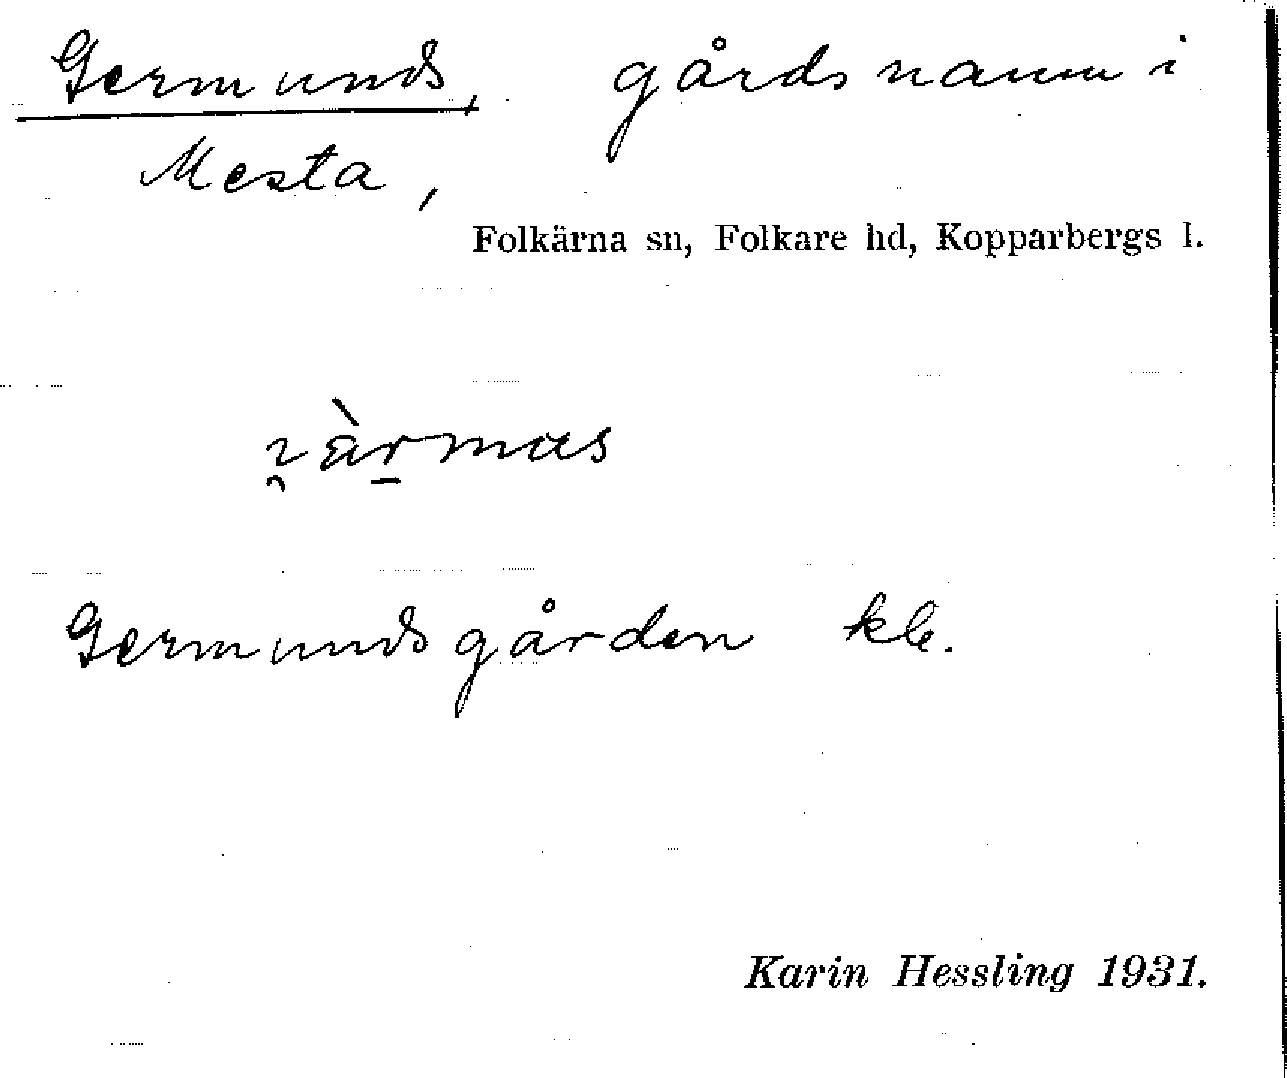 Germunds, gårdsnamn i
Mesta,
Folkärna sn, Folkare hd, Kopparbergs l.
Germundsgården kb.
Karin Hessling 1931.